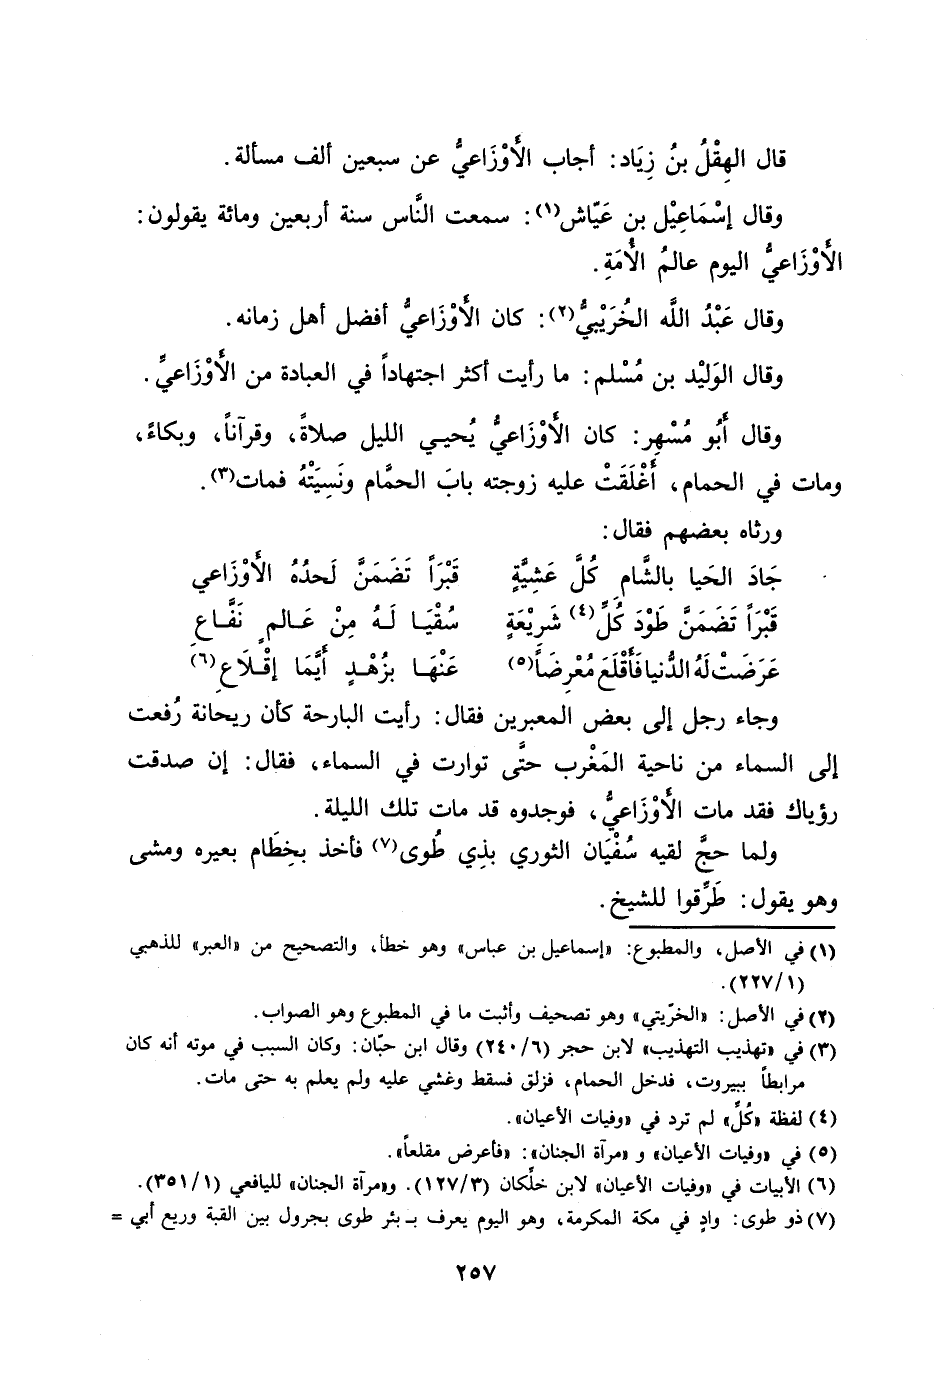 قال الهِقْلُ بنُ زِيَاد: أجاب الأَوْزَاعيُّ عن سبعين ألف مسألة.
وقال إسْمَاعِيْل بن عَيّاش(١): سمعت النَّاس سنة أربعين ومائة يقولون:
الأَوْزَاعيُّ اليوم عالمُ الأُمَةِ.
وقال عَبْدُ اللَّه الخُرَيْبيُّ(٢): كان الأَوْزَاعيُّ أفضل أهل زمانه.
وقال الوَلِيْد بن مُسْلم: ما رأيت أكثر اجتهاداً في العبادة من الأَوْزَاعيِّ.
وقال أَبُو مُسْهِر: كان الأَوْزَاعيُّ يُحيـي الليل صلاةً، وقرآناً، وبكاءً،
ومات في الحمام، أَغْلَقَتْ عليه زوجته بابَ الحمَّام ونَسِيَتْهُ فمات(٣).
ورثاه بعضهم فقال:
جَادَ الحَيا بالشَّامِ كُلَّ عَشِيَّةٍ قَبْرَاً تَضَمَنَّ لَحدُهُ الأَوْزَاعي
قَبْرَاً تَضَمَنَّ طَوْدَ كُلِّ(٤) شَرِيْعَةٍ سُقْيَـا لَـهُ مِنْ عَـالمٍ نَفَّـاعِ
عَرَضَتْ لَهُ الدُّنيا فَأَقْلَعَ مُعْرِضَاً(٥) عَنْهَـا بزُهْـدٍ أَيَّمَا إقْـلَاعِ(٦)
وجاء رجل إلى بعض المعبرين فقال: رأيت البارحة كأن ريحانة رُفعت
إلى السماء من ناحية المَغْرب حتَّى توارت في السماء، فقال: إن صدقت
رؤياك فقد مات الأَوْزَاعيُّ، فوجدوه قد مات تلك الليلة.
ولما حجَّ لقيه سُفْيَان الثوري بذِي طُوى(٧) فأخذ بخِطَام بعيره ومشى
وهو يقول: طَرِّقوا للشيخ.
(١) في الأصل، والمطبوع: «إسماعيل بن عباس» وهو خطأ، والتصحيح من «العبر» للذهبي
(٢٢٧/١).
(٢) في الأصل: «الخرّيتي» وهو تصحيف وأثبت ما في المطبوع وهو الصواب.
(٣) في «تهذيب التهذيب» لابن حجر (٢٤٠/٦) وقال ابن حبّان: وكان السبب في موته أنه كان
مرابطاً ببيروت، فدخل الحمام، فزلق فسقط وغشي عليه ولم يعلم به حتى مات.
(٤) لفظة «كُلِّ» لم ترد في «وفيات الأعيان».
(٥) في «وفيات الأعيان» و «مرآة الجنان»: «فأعرض مقلعاً».
(٦) الأبيات في «وفيات الأعيان» لابن خلّكان (١٢٧/٣). و«مرآة الجنان» لليافعي (٣٥١/١).
(٧) ذو طوى: وادٍ في مكة المكرمة، وهو اليوم يعرف بـ بئر طوى بجرول بين القبة وريع أبي =
٢٥٧